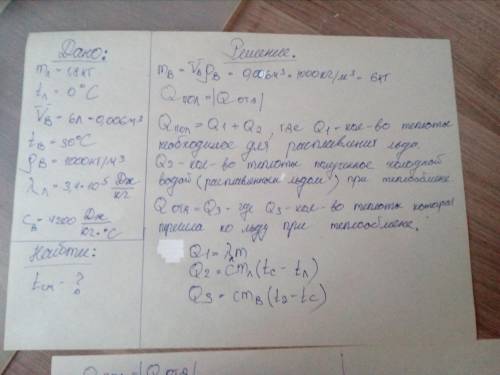 Дано:
tл = 0°C
Vв = 6л = 0,006м³
tв = 50°C
ρв = 1000кг/м³
λл = 3,4·10⁵ Дж/кг
cв = 4200 Дж/кг·°C
Найти:
tсм - ?
Решение.
mв = Vвρв = 0,006м³ · 1000кг/м³ = 6кг
Qпол = |Qотд|
Qпол = Q1 + Q2, где Q1 - кол-во теплоты
необходимое для расплавления льда.
Q2 - кол-во теплоты полученное холодной
водой (расплавленным льдом) при теплообмене.
Qотд = Q3 - где Q3 - кол-во теплоты которая
пришла ко льду при теплообмене.
Q1 = λлm
Q2 = cmл(tc - tл)
Q3 = cmв(t2 - tc)
Qпол = |Qотд|